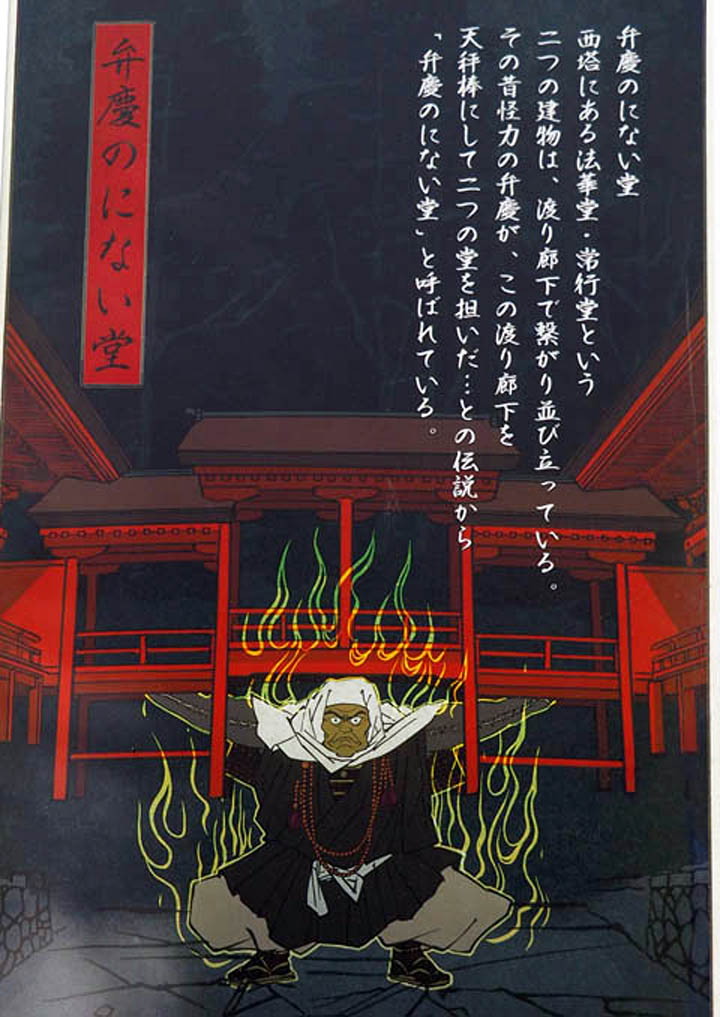 弁慶のにない堂
西塔にある法華堂・常行堂という
二つの建物は、渡り廊下で繋がり並び立っている。
その昔怪力の弁慶が、この渡り廊下を
天秤棒にして二つの堂を担いだ…との伝説から
「弁慶のにない堂」と呼ばれている。
弁慶のにない堂